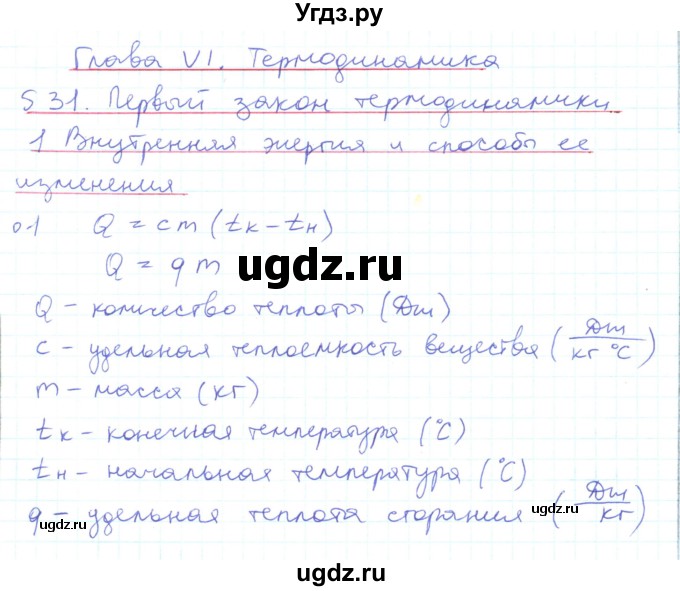 Угдз.ру
Глава VI. Термодинамика
§ 31. Первый закон термодинамики
1 Внутренняя энергия и способы ее
изменения
01 Q = cm (tк - tн)
Q = qm
ugdz.ru
Q - количество теплоты (Дж)
c - удельная теплоемкость вещества (Дж/кг °C)
m - масса (кг)
tк - конечная температура (°C)
tн - начальная температура (°C)
q - удельная теплота сгорания (Дж/кг)
ugdz.ru
ugdz.ru